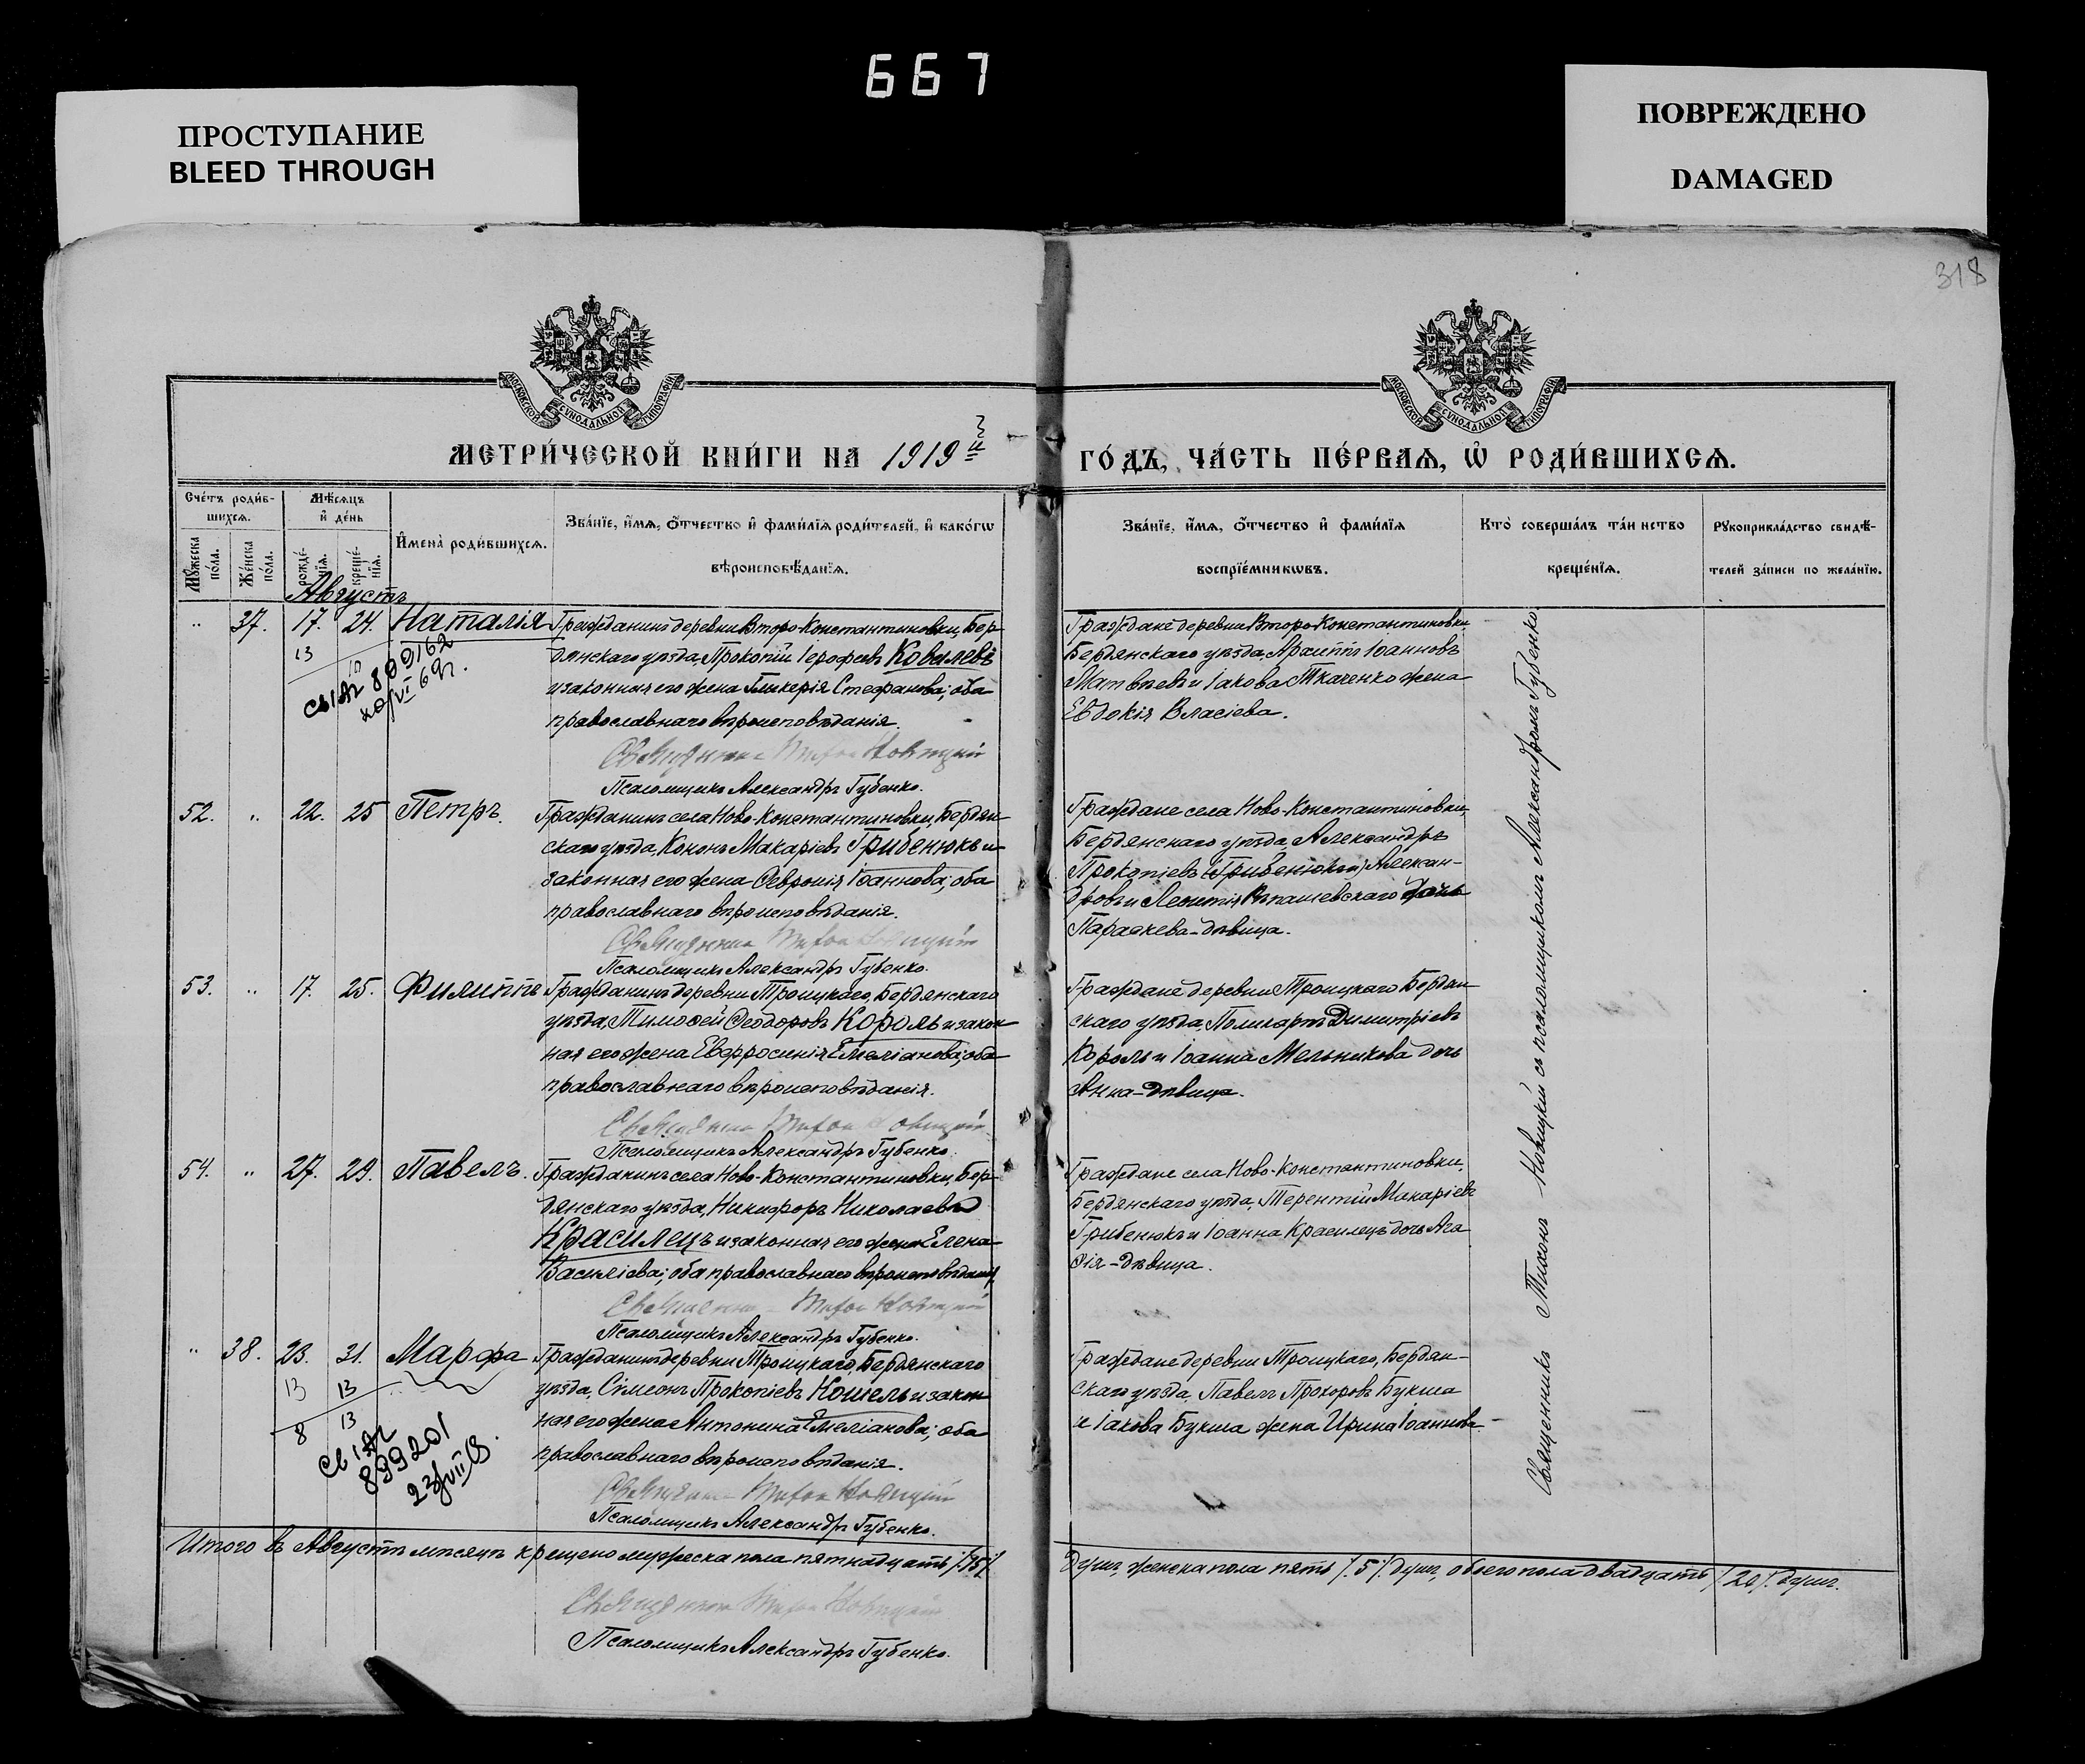 667
ПРОСТУПАНИЕ
BLEED THROUGH
ПОВРЕЖДЕНО
DAMAGED
318
МОСКОВСКОЙ СѴНОДАЛЬНОЙ ТИПОГРАФІИ
МОСКОВСКОЙ СѴНОДАЛЬНОЙ ТИПОГРАФІИ
МЕТРИ́ЧЕСКОЙ КНИ́ГИ НА 1919й
ГО́ДЪ, ЧА́СТЬ ПЕ́РВАѦ, Ѡ҆ РОДИ́ВШИХСѦ.
Сче́тъ роди́в-
шихсѧ.
Мѣ́сѧцъ
и҆ де́нь
Мꙋ́жеска по́ла.
Же́нска по́ла.
рожде́-нїѧ.
креще́-нїѧ.
И҆мена̀ роди́вшихсѧ.
Зва́нїе, и҆́мѧ, ѻ҆́тчество и҆ фами́лїѧ роди́телей, и҆ како́гѡ
вѣроисповѣ́данїѧ.
Зва́нїе, и҆́мѧ, ѻ҆́тчество и҆ фами́лїѧ
воспрїе́мникѡвъ.
Кто̀ соверша́лъ та́инство
креще́нїѧ.
Рꙋкоприкла́дство свидѣ́-
телей за́писи по жела́нїю.
Августъ
" 37. 17. 24. Наталія
13
10
свід 899162
20/VI 69г.
Гражданинъ деревни Второ-Константиновки, Бер-
дянскаго уѣзда, Прокопій Іерофеевъ Ковалевъ
и законная его жена Гликерія Стефанова; оба
православнаго вѣроисповѣданія.
Священникъ Тихонъ Новицкій
Псаломщикъ Александръ Губенко.
Граждане деревни Второ-Константиновки
Бердянскаго уѣзда, Архиппъ Іоанновъ
Матвѣевъ и Іакова Ткаченко жена
Евдокія Власіева.
52. " 22. 25 Петръ.
Гражданинъ села Ново-Константиновки, Бердян-
скаго уѣзда, Кононъ Макаріевъ Грибенюкъ и
законная его жена Февронія Іоаннова; оба
православнаго вѣроисповѣданія.
Священникъ Тихонъ Новицкій
Псаломщикъ Александръ Губенко.
Граждане села Ново-Константиновки,
Бердянскаго уѣзда, Александръ
Прокопіевъ (Грибенюкъ) Алексан-
дровъ и Леонтія дочь
Параскева-дѣвица.
53. " 17. 25. Филиппъ
Гражданинъ деревни Троицкаго, Бердянскаго
уѣзда, Тимофей Ѳеодоровъ Король и закон-
ная его жена Евфросинія Емеліанова; оба
православнаго вѣроисповѣданія.
Священникъ Тихонъ Новицкій
Псаломщикъ Александръ Губенко.
Граждане деревни Троицкаго Бердян-
скаго уѣзда, Поликарпъ Димитріевъ
Король и Іоанна Мельникова дочь
Анна-дѣвица.
54. " 27. 29. Павелъ.
Гражданинъ села Ново-Константиновки, Бер-
дянскаго уѣзда, Никифоръ Николаевъ
Красилецъ и законная его жена Елена
Василіева; оба православнаго вѣроисповѣданія
Священникъ Тихонъ Новицкій
Псаломщикъ Александръ Губенко.
Граждане села Ново-Константиновки,
Бердянскаго уѣзда, Терентій Макаріевъ
Грибенюкъ и Іоанна Красилецъ дочь Ага-
фія-дѣвица.
" 38. 23. 31. Марфа
13 13
8 13
свід
899201
23/VII
Гражданинъ деревни Троицкаго, Бердянскаго
уѣзда, Симеонъ Прокопіевъ Кошель и закон-
ная его жена Антонина Емеліанова; оба
православнаго вѣроисповѣданія.
Священникъ Тихонъ Новицкій
Псаломщикъ Александръ Губенко.
Граждане деревни Троицкаго, Бердян-
скаго уѣзда, Павелъ Прохоровъ Букша
и Іакова Букша жена Ирина Іоаннова
Священникъ Тихонъ Новицкій съ псаломщикомъ Александромъ Губенко
Итого въ Августѣ мѣсяцѣ крещено мужеска пола пятнадцать /.15/.
душъ, женска пола пять /.5/. душъ, обоего пола двадцать /.20/. душъ.
Священникъ Тихонъ Новицкій
Псаломщикъ Александръ Губенко.